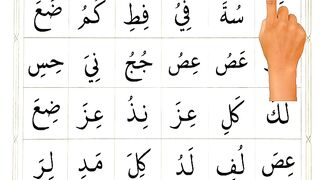 سُهَ فِيْ فِطِ كَمُ ضَعَ
عَصُ عِصُ جُجُ نِيَ حِسِ
لَكَ كَلِ عِزَ نِذُ عِزَ ضِعَ
عِصَ لُفِ لَدُ كِلَ مَدِ لِرَ